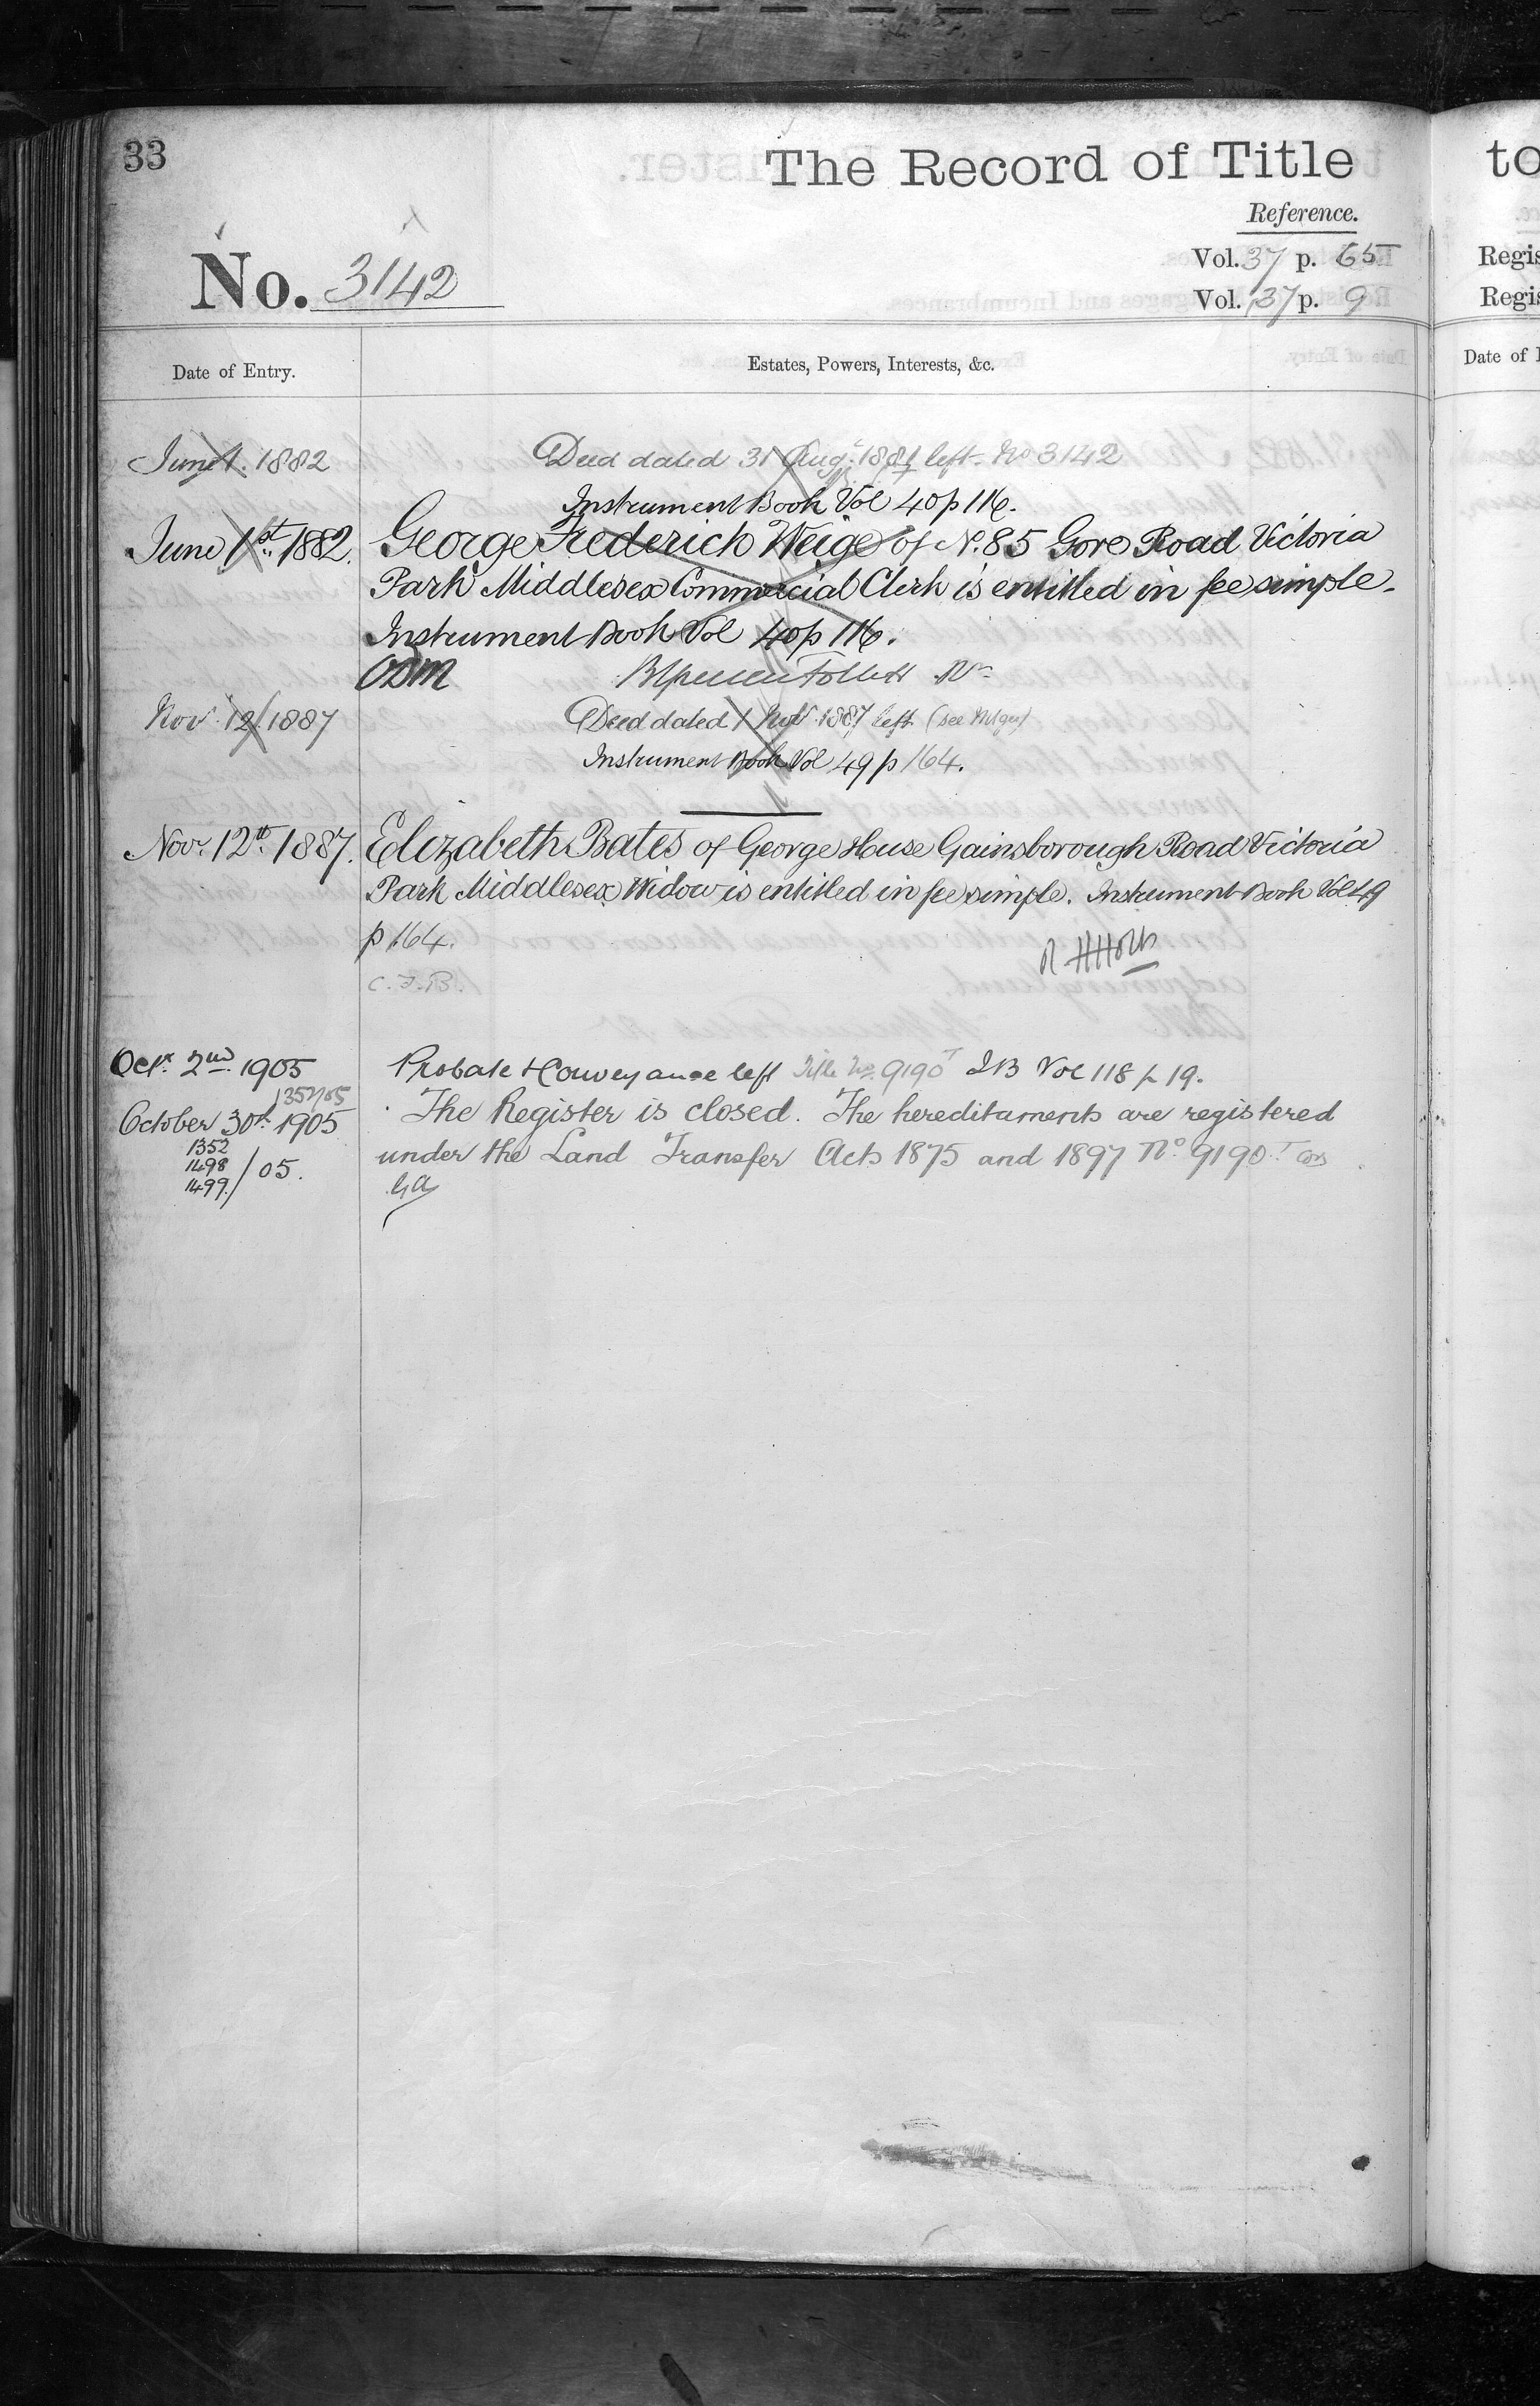 33
The Record of Title
Reference.
No. 3142
Vol. 37 p. 65
Vol. 37 p. 9
Date of Entry.
Estates, Powers, Interests, &c.
June 1. 1882
Deed dated 31 Aug: 1881 left. No 3142
Instrument Book Vol 40 p 116.
June 1st. 1882. George Frederick Weige of No. 85 Gore Road Victoria
Park Middlesex Commercial Clerk is entitled in fee simple.
Instrument Book Vol 40 p 116.
ODM
Nov 12/1887
Deed dated 1 Nov 1887 left
Instrument Book Vol 49 p 164.
Nov. 12th. 1887. Elizabeth Bates of George House Gainsborough Road Victoria
Park Middlesex Widow is entitled in fee simple. Instrument Book Vol 49
p 164.
R H Holt
C.F.B.
Oct. 2nd. 1905 Probate & Conveyance left Title No. 9190 T I B Vol 118 p 19.
1352/05
October 30th. 1905 The Register is closed. The hereditaments are registered
under the Land Transfer Acts 1875 and 1897 No 9190 T
1352
1498
1499 / 05.
to
Regis
Regis
Date of